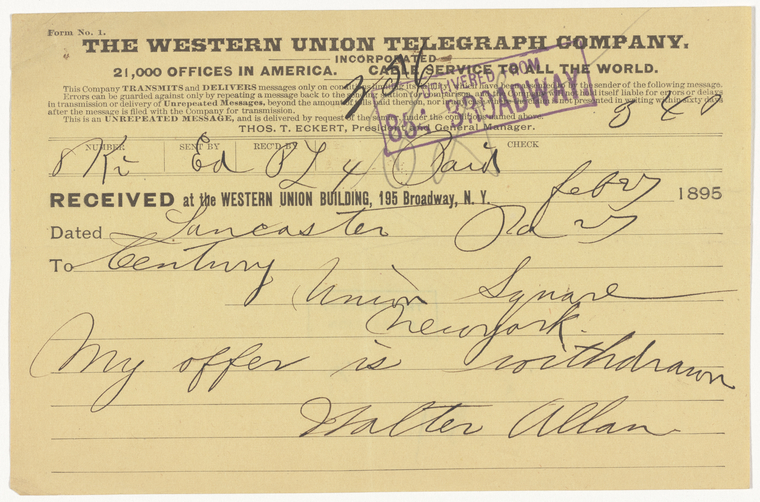 Form No. 1.
THE WESTERN UNION TELEGRAPH COMPANY.
INCORPORATED
21,000 OFFICES IN AMERICA. CABLE SERVICE TO ALL THE WORLD.
This Company TRANSMITS and DELIVERS messages only on conditions limiting its liability, which have been assented to by the sender of the following message.
Errors can be guarded against only by repeating a message back to the sending station for comparison, and the Company will not hold itself liable for errors or delays
in transmission or delivery of Unrepeated Messages, beyond the amount of tolls paid thereon, nor in any case where the claim is not presented in writing within sixty days
after the message is filed with the Company for transmission.
This is an UNREPEATED MESSAGE, and is delivered by request of the sender, under the conditions named above.
THOS. T. ECKERT, President and General Manager.
DELIVERED FROM
BROADWAY
NUMBER SENT BY REC'D BY CHECK
8 Ed Paid
RECEIVED at the WESTERN UNION BUILDING, 195 Broadway, N. Y. Feb 27 1895
Dated Lancaster Pa 27
To Century
Union Square
Newyork.
My offer is withdrawn
Walter Allan